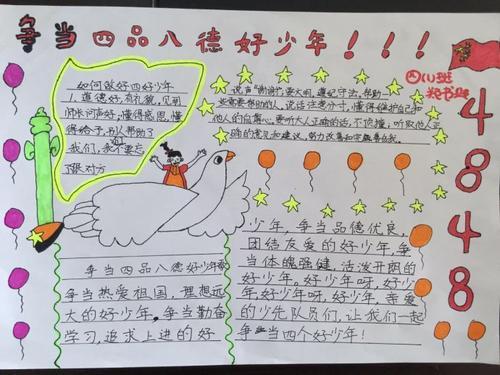 争当四品八德好少年！！！
如何做好四好少年
1.道德好，有礼貌，见到
师长问声好，懂得感恩，懂
得给予，别人帮助了
我们，我不要忘
了
对方
说声"谢谢"
遵纪守法，帮助一
些需要帮助的人，说话注意分寸，懂得维护自己和
他人的自尊心。要听大人正确的话，不顶撞，听取他人正
确的意见和建议，努力改善和完善自我。
八(1)班
4
8
4
8
争当四品八德好少年
争当热爱祖国，理想远
大的好少年，争当勤奋
学习，追求上进的好
少年，争当品德优良，
团结友爱的好少年，争
当体魄强健，活泼开朗的
好少年。好少年呀，好少
年，好少年呀，好少年，亲爱
的少先队员们，让我们一起
争当四个好少年！